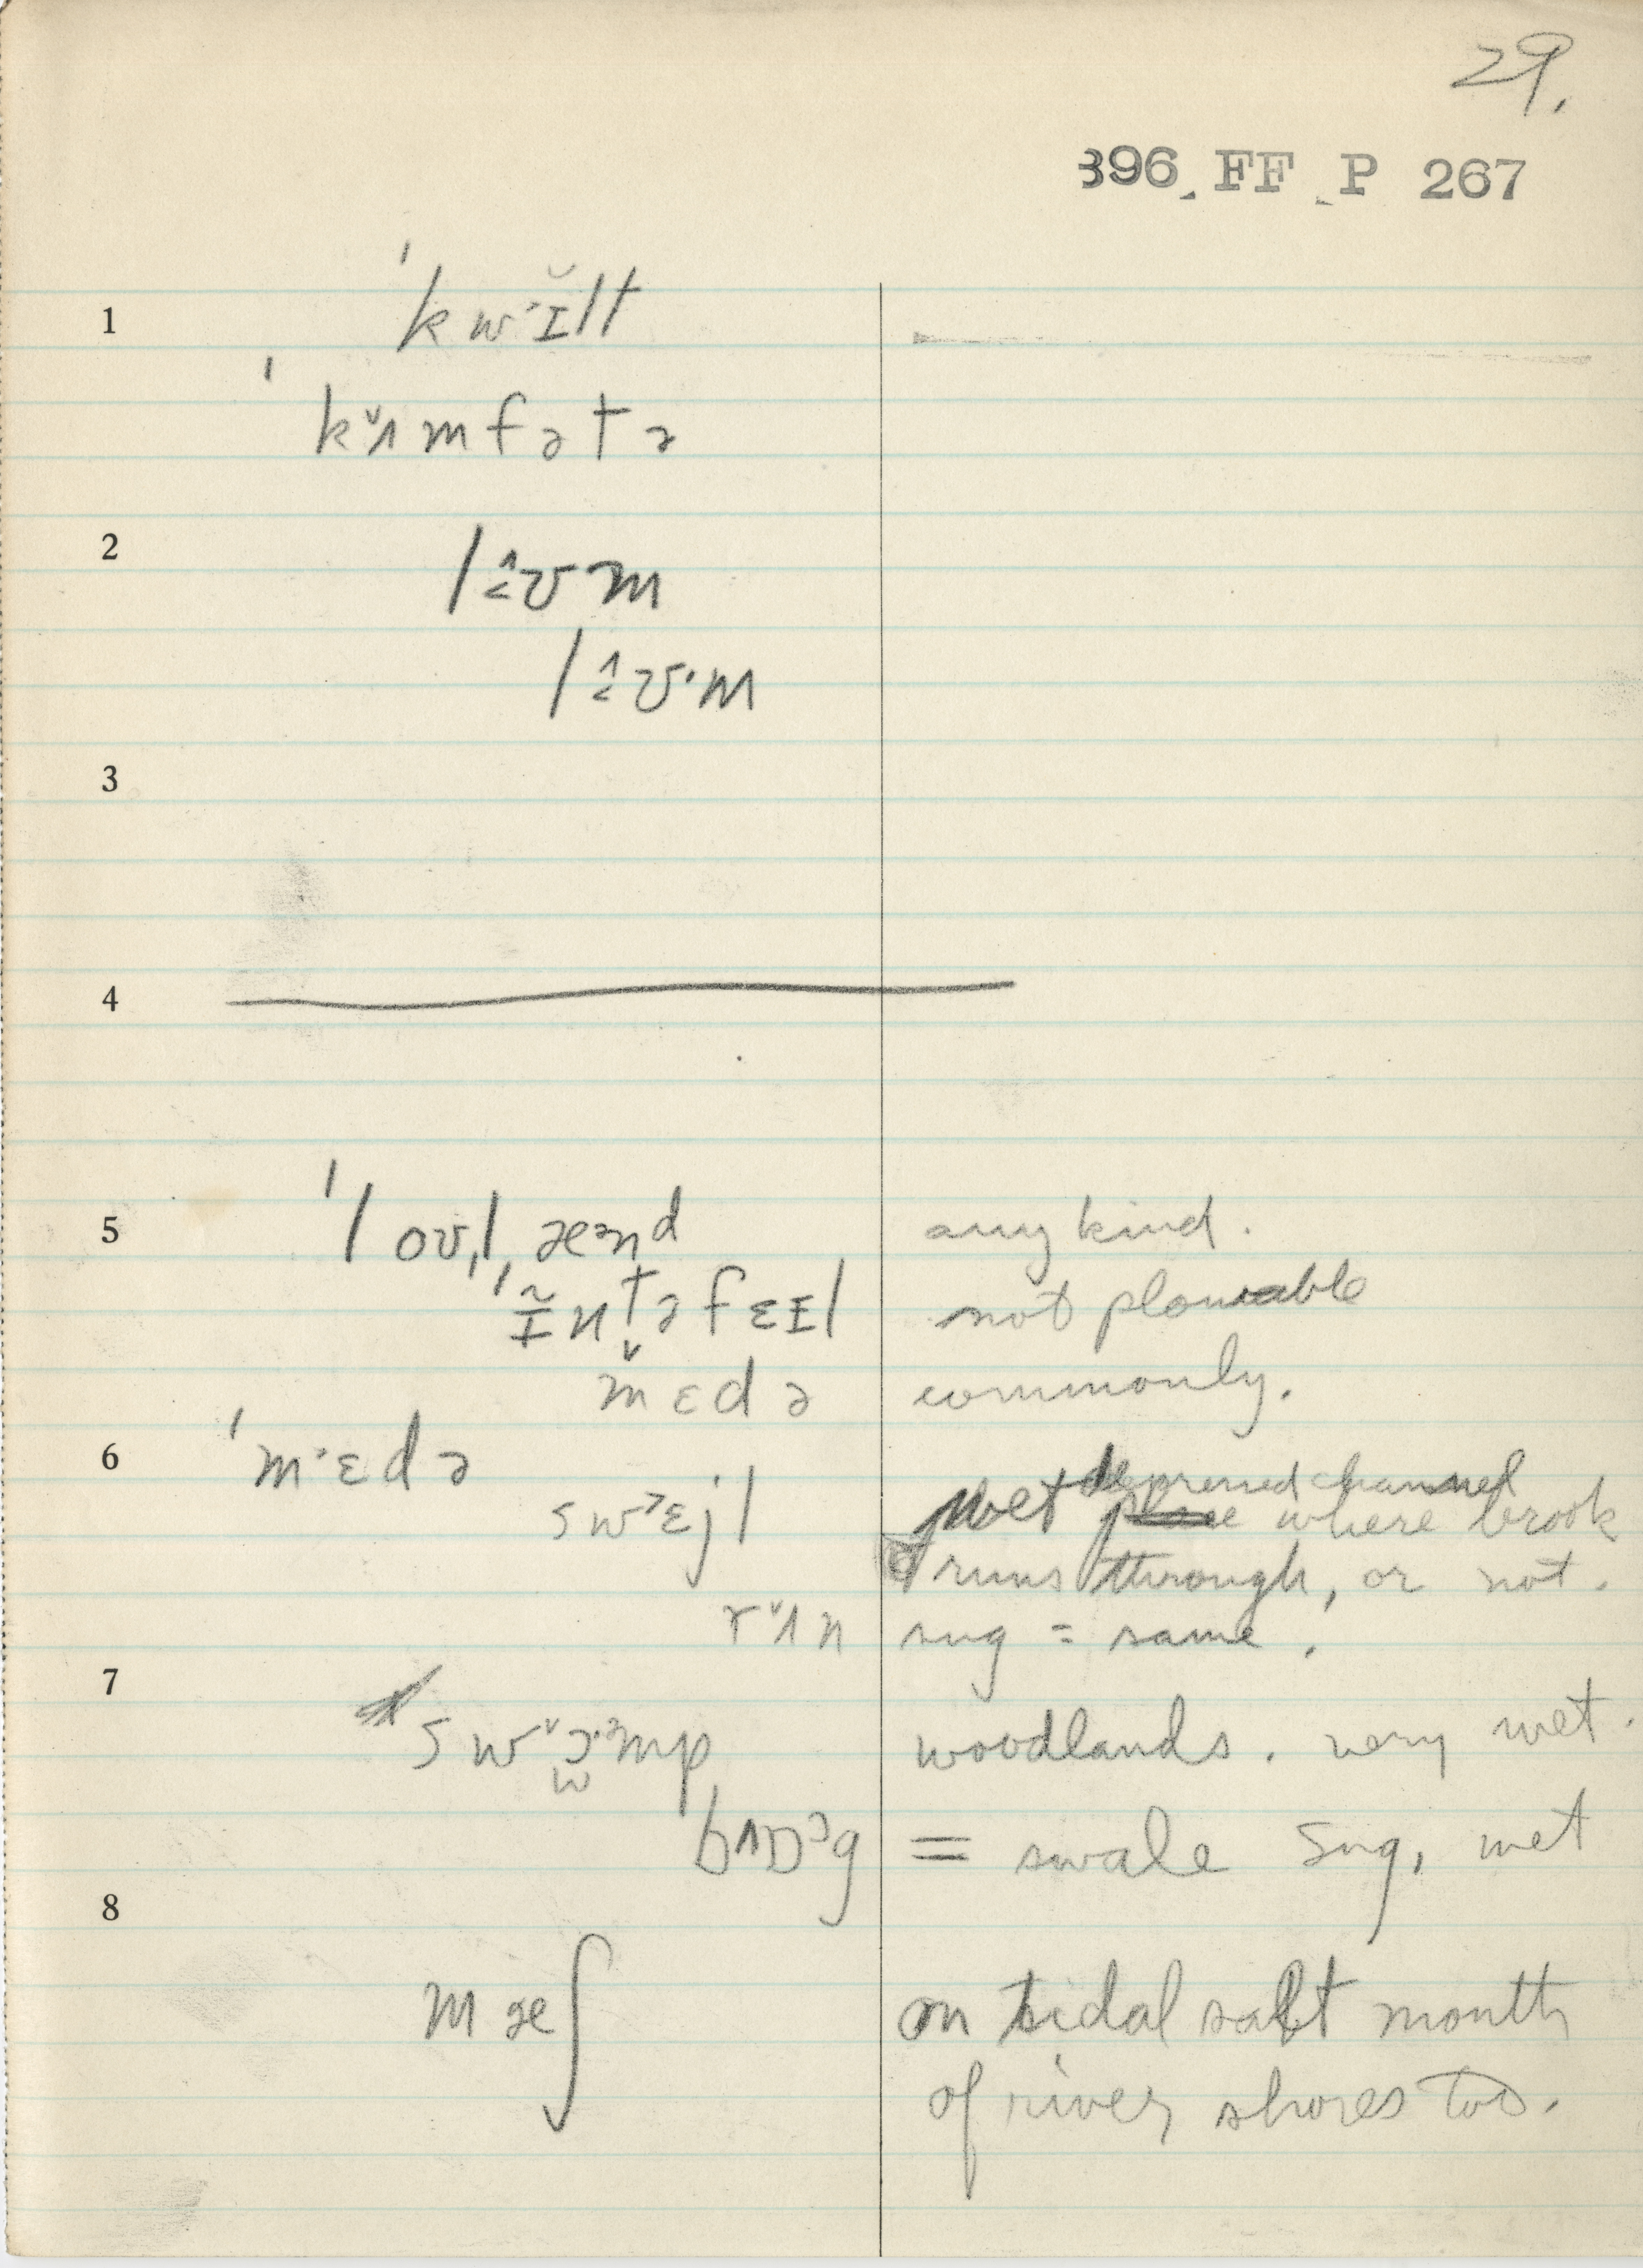 29.
396 FF P 267
1 ˈkwɪ̆lt
ˈkʌmfətə
2 lʊm
lʊ·m
3
4
5 ˈloʊˌlænd any kind.
ˈɪ̃ntəfɛɪl not plowable
mɛdə commonly.
6 ˈmɛdə depressed channel
swɛjl wet where brook
runs through, or not.
rʌn sug = same.
7 swɔmp woodlands. very wet.
bɒg = swale sug, wet
8
mæʃ on tidal salt mouth
of river shores too.